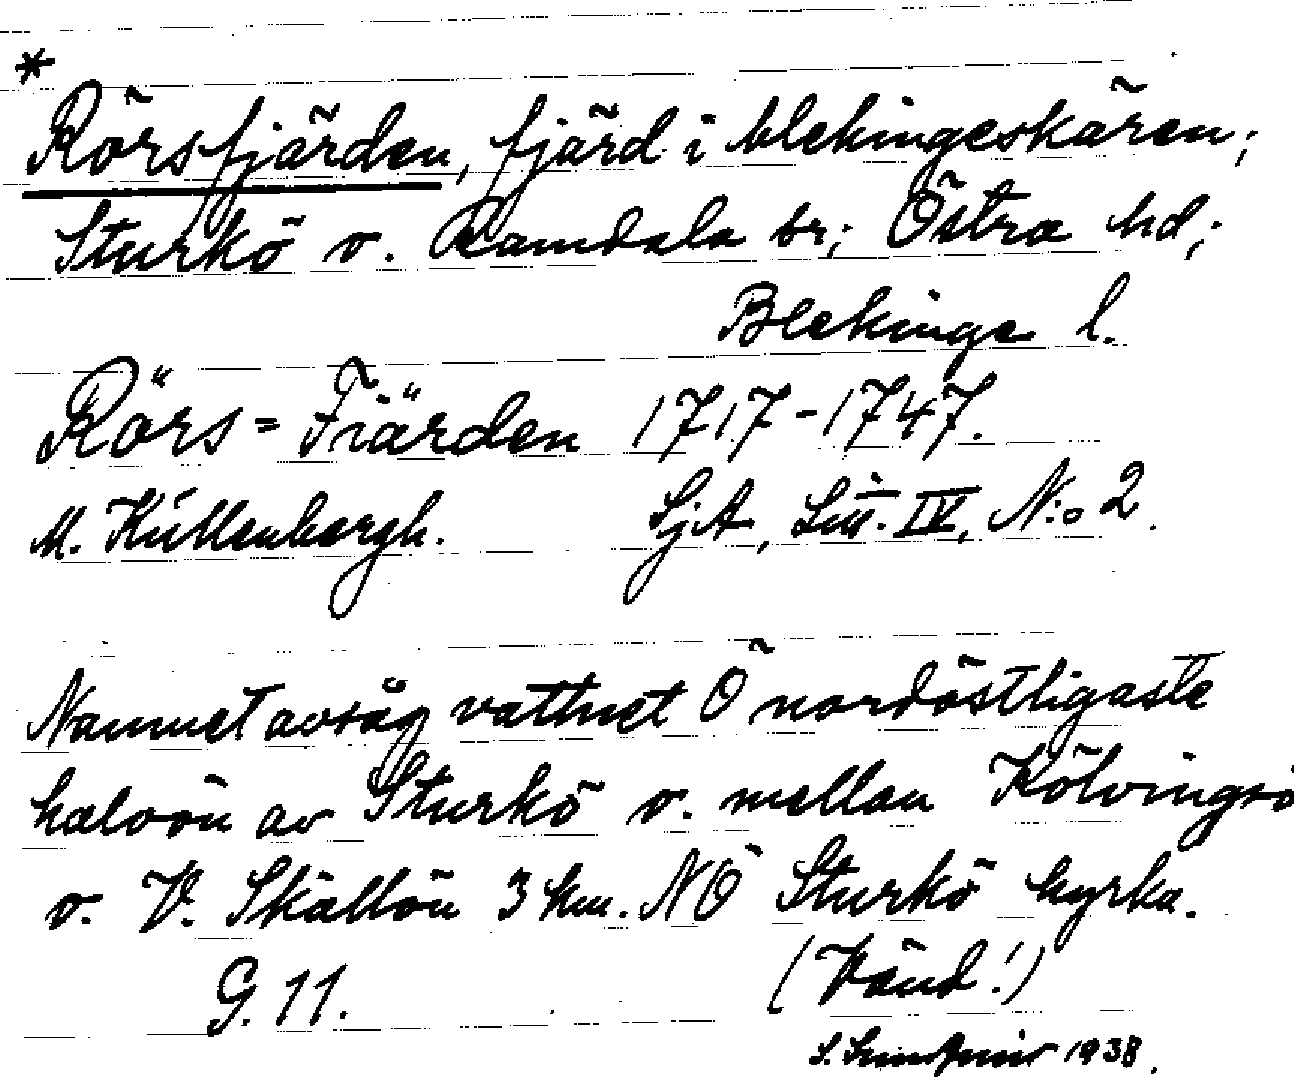 *
Rörsfjärden, fjärd i blekingeskären;
Sturkö o. Ramdala sr; Östra hd;
Blekinge l.
Rörs=Fiärden 1717-1747.
M. Küllenbergh. SjA, Litt. IV, N:o 2.
Namnet avsåg vattnet Ö nordöstligaste
halvön av Sturkö o. mellan Kölvingsö
o. V. Skällön 3 km. NÖ Sturkö kyrka.
G. 11. (Vänd!)
S. 1938.